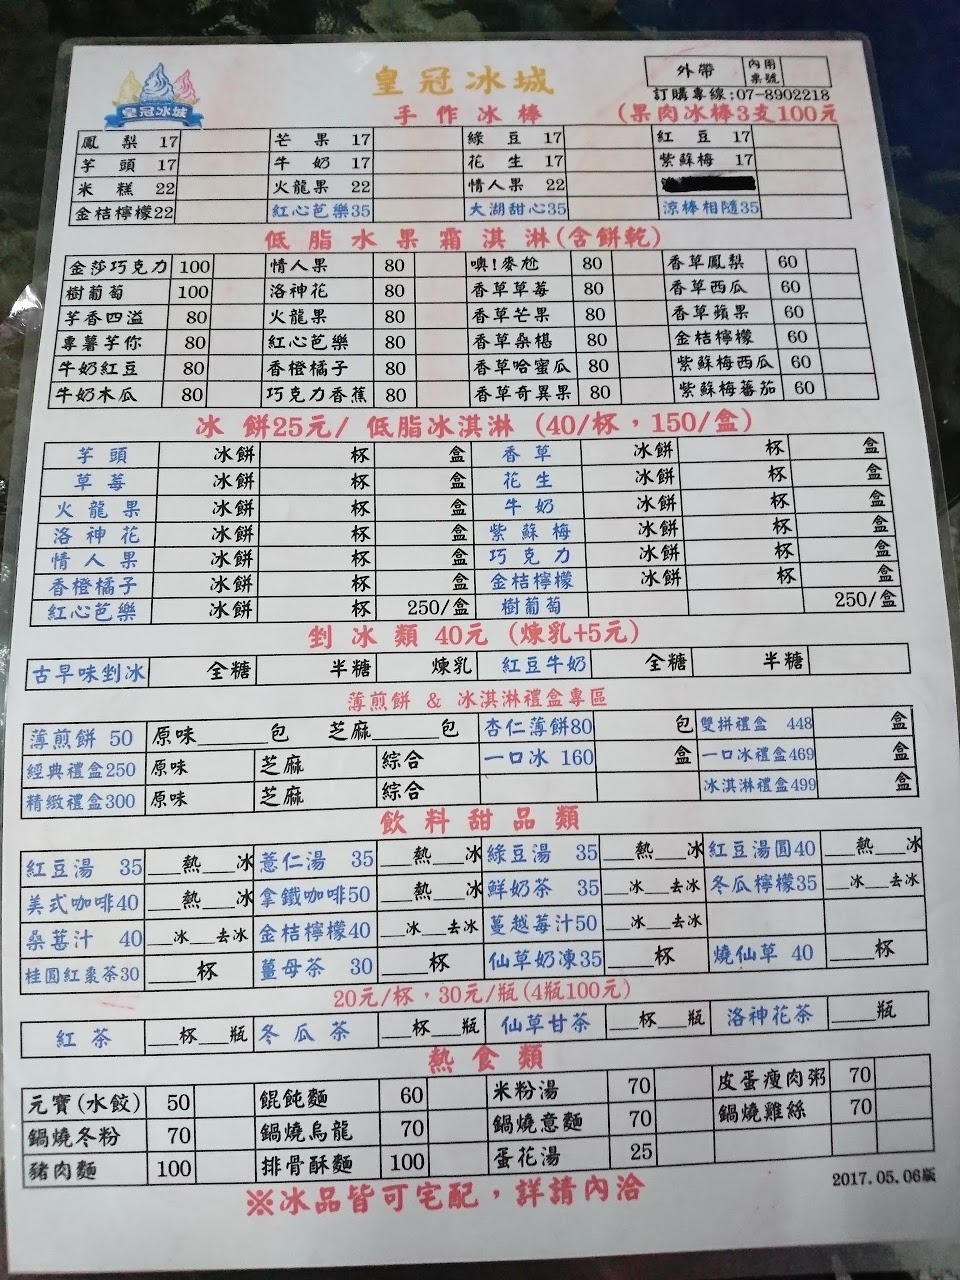 皇冠冰城
皇冠冰城
外帶 內用桌號
訂購專線:07-8902218
手作冰棒 (果肉冰棒3支100元
鳳梨 17 芒果 17 綠豆 17 紅豆 17
芋頭 17 牛奶 17 花生 17 紫蘇梅 17
米糕 22 火龍果 22 情人果 22
金桔檸檬22 紅心芭樂35 大湖甜心35 涼棒相隨35
低脂水果霜淇淋(含餅乾)
金莎巧克力 100 情人果 80 噢!麥尬 80 香草鳳梨 60
樹葡萄 100 洛神花 80 香草草莓 80 香草西瓜 60
芋香四溢 80 火龍果 80 香草芒果 80 香草蘋果 60
專薯芋你 80 紅心芭樂 80 香草桑椹 80 金桔檸檬 60
牛奶紅豆 80 香橙橘子 80 香草哈蜜瓜 80 紫蘇梅西瓜 60
牛奶木瓜 80 巧克力香蕉 80 香草奇異果 80 紫蘇梅蕃茄 60
冰餅25元/ 低脂冰淇淋 (40/杯，150/盒)
芋頭 冰餅 杯 盒 香草 冰餅 杯 盒
草莓 冰餅 杯 盒 花生 冰餅 杯 盒
火龍果 冰餅 杯 盒 牛奶 冰餅 杯 盒
洛神花 冰餅 杯 盒 紫蘇梅 冰餅 杯 盒
情人果 冰餅 杯 盒 巧克力 冰餅 杯 盒
香橙橘子 冰餅 杯 盒 金桔檸檬 冰餅 杯 盒
紅心芭樂 冰餅 杯 250/盒 樹葡萄 250/盒
剉冰類 40元 (煉乳+5元)
古早味剉冰 全糖 半糖 煉乳 紅豆牛奶 全糖 半糖
薄煎餅 & 冰淇淋禮盒專區
薄煎餅 50 原味______包 芝麻______包 杏仁薄餅80 包 雙拼禮盒 448 盒
經典禮盒250 原味 芝麻 綜合 一口冰 160 盒 一口冰禮盒469 盒
精緻禮盒300 原味 芝麻 綜合 冰淇淋禮盒499 盒
飲料甜品類
紅豆湯 35 ___熱___冰 薏仁湯 35 ___熱___冰 綠豆湯 35 ___熱___冰 紅豆湯圓40 ___熱___冰
美式咖啡40 ___熱___冰 拿鐵咖啡50 ___熱___冰 鮮奶茶 35 __冰___去冰 冬瓜檸檬35 __冰___去冰
桑葚汁 40 __冰___去冰 金桔檸檬40 __冰___去冰 蔓越莓汁50 __冰___去冰
桂圓紅棗茶30 _____杯 薑母茶 30 _____杯 仙草奶凍35 _____杯 燒仙草 40 _____杯
20元/杯，30元/瓶(4瓶100元)
紅茶 ___杯___瓶 冬瓜茶 ___杯___瓶 仙草甘茶 ___杯___瓶 洛神花茶 _____瓶
熱食類
元寶(水餃) 50 餛飩麵 60 米粉湯 70 皮蛋瘦肉粥 70
鍋燒冬粉 70 鍋燒烏龍 70 鍋燒意麵 70 鍋燒雞絲 70
豬肉麵 100 排骨酥麵 100 蛋花湯 25
※冰品皆可宅配，詳請內洽
2017.05.06版